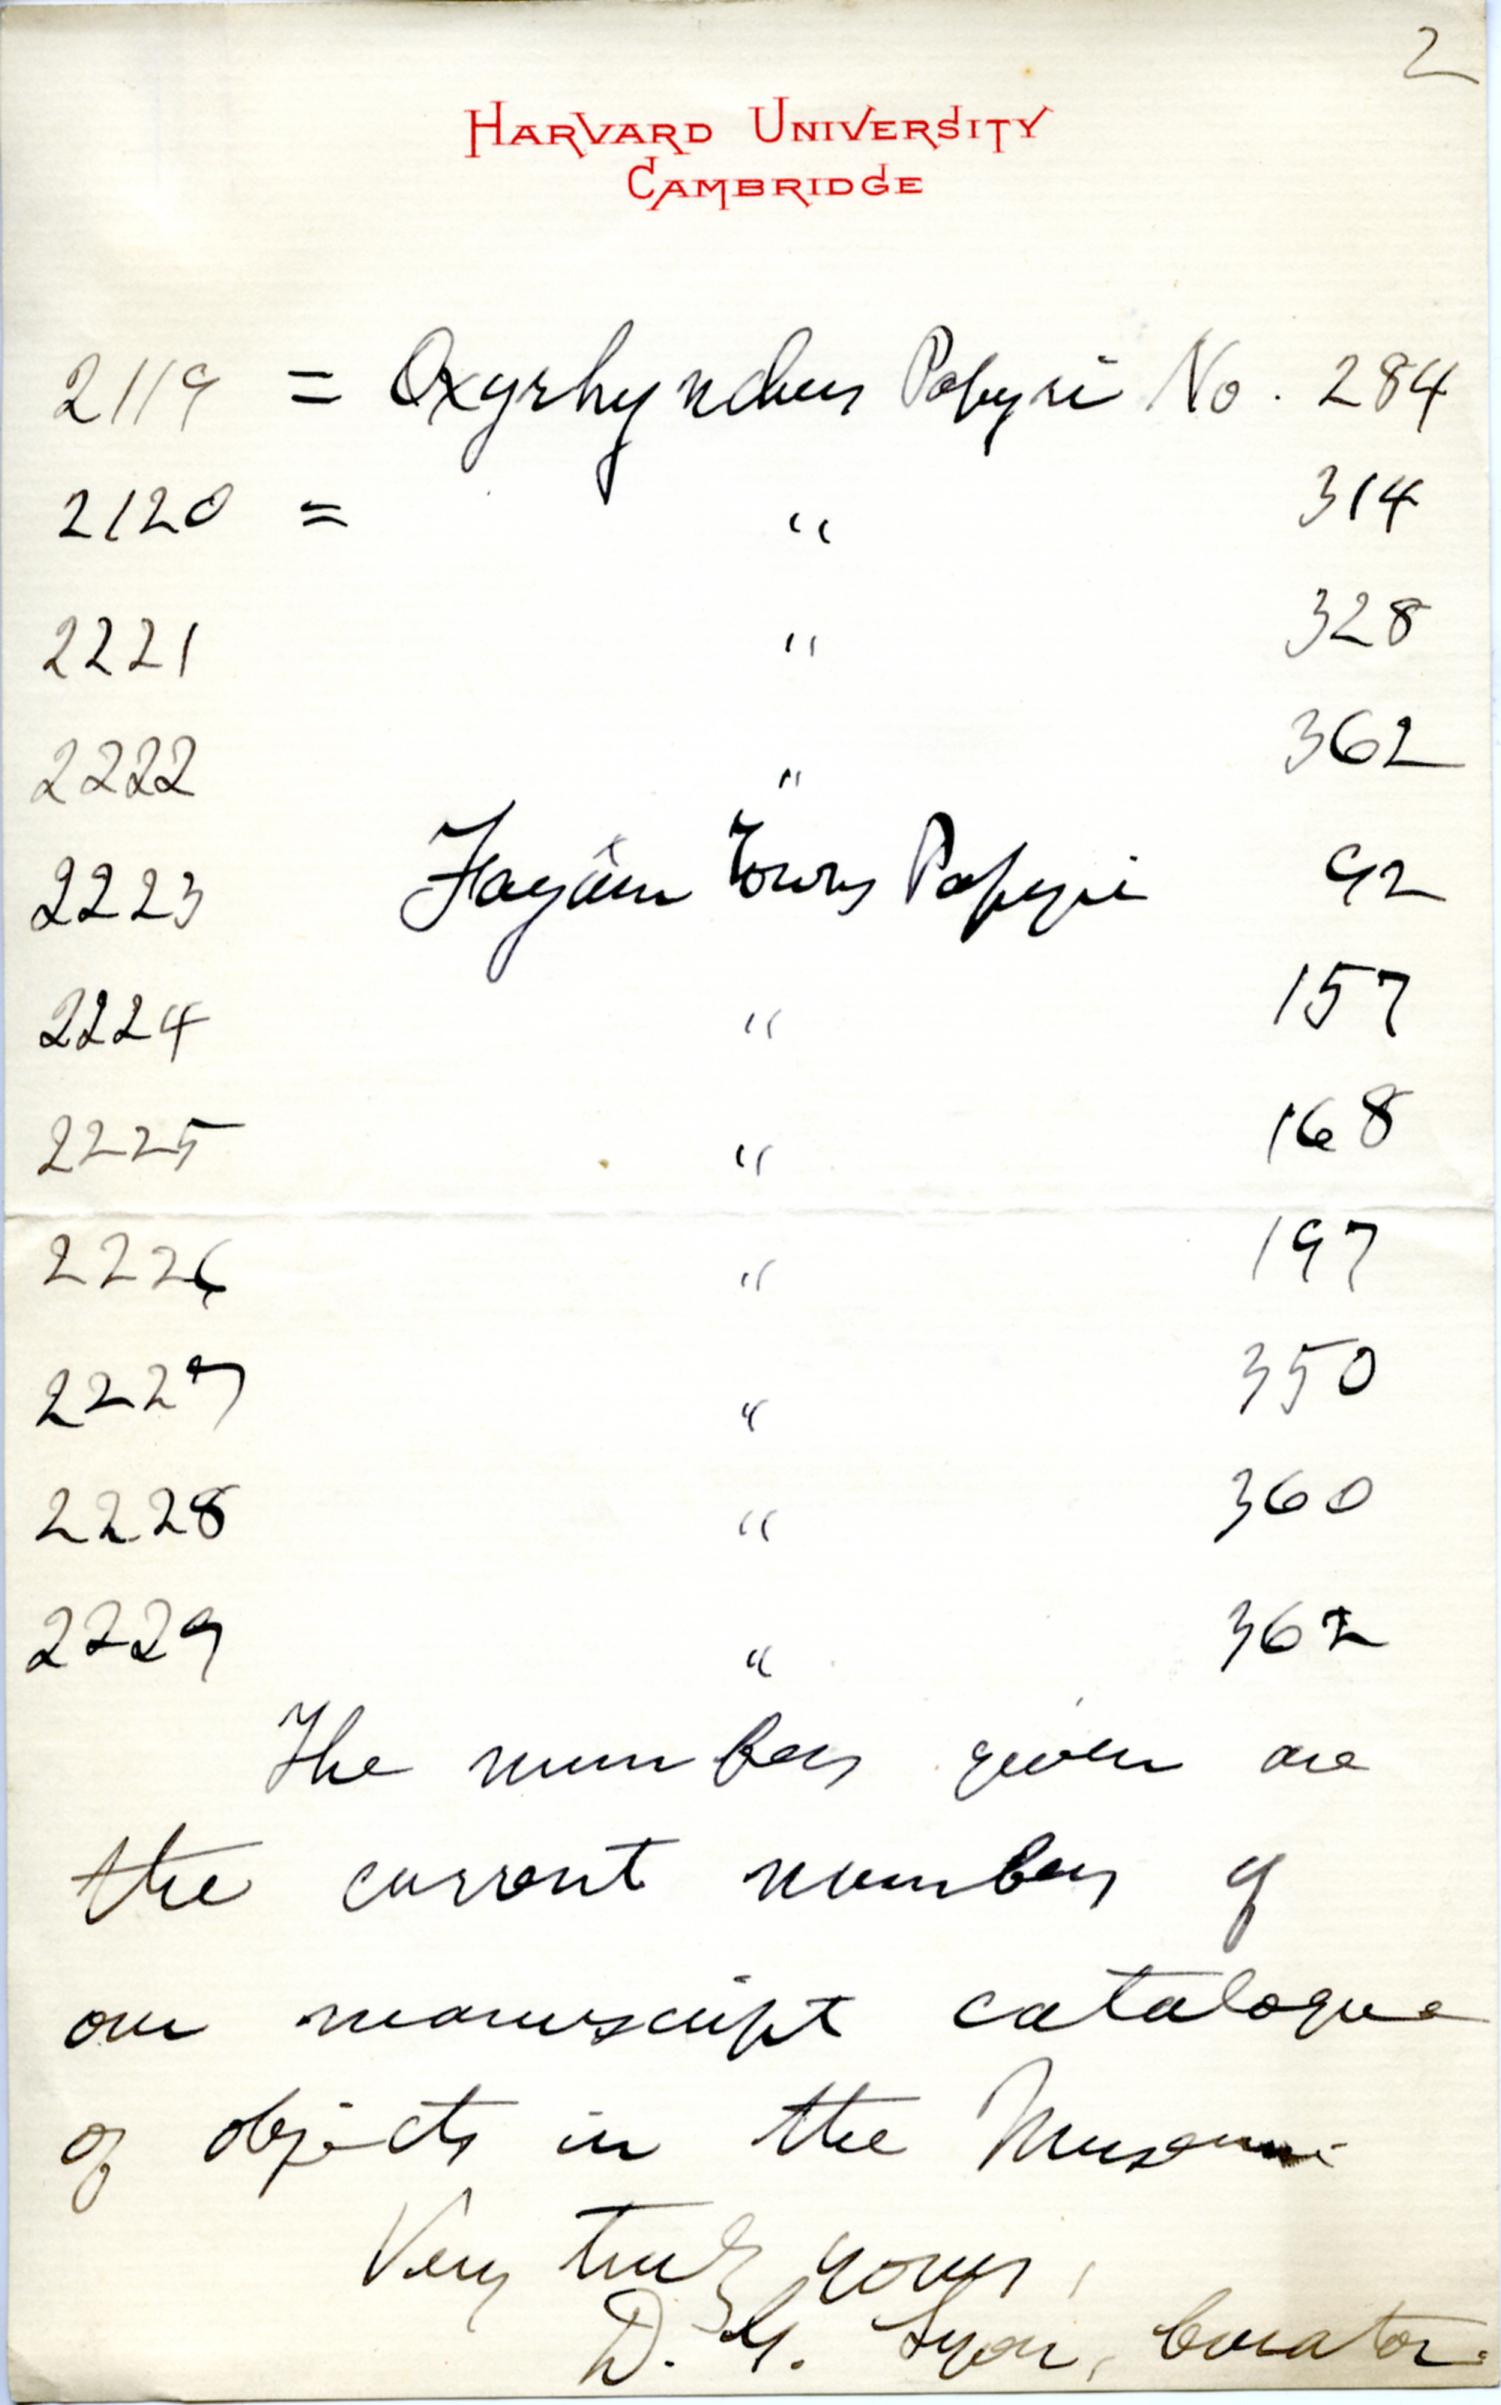 2
HARVARD UNIVERSITY
CAMBRIDGE
2119 = Oxyrhynchus Papyri No. 284
2120 = " 314
2221 " 328
2222 " 362
2223 Fayûm Towns Papyri 92
2224 " 157
2225 " 168
2226 " 197
2227 " 350
2228 " 360
2229 " 362
The numbers given are
the current numbers of
our manuscript catalogue
of objects in the Museum.
Very truly yours,
D. G. Lyon, Curator.